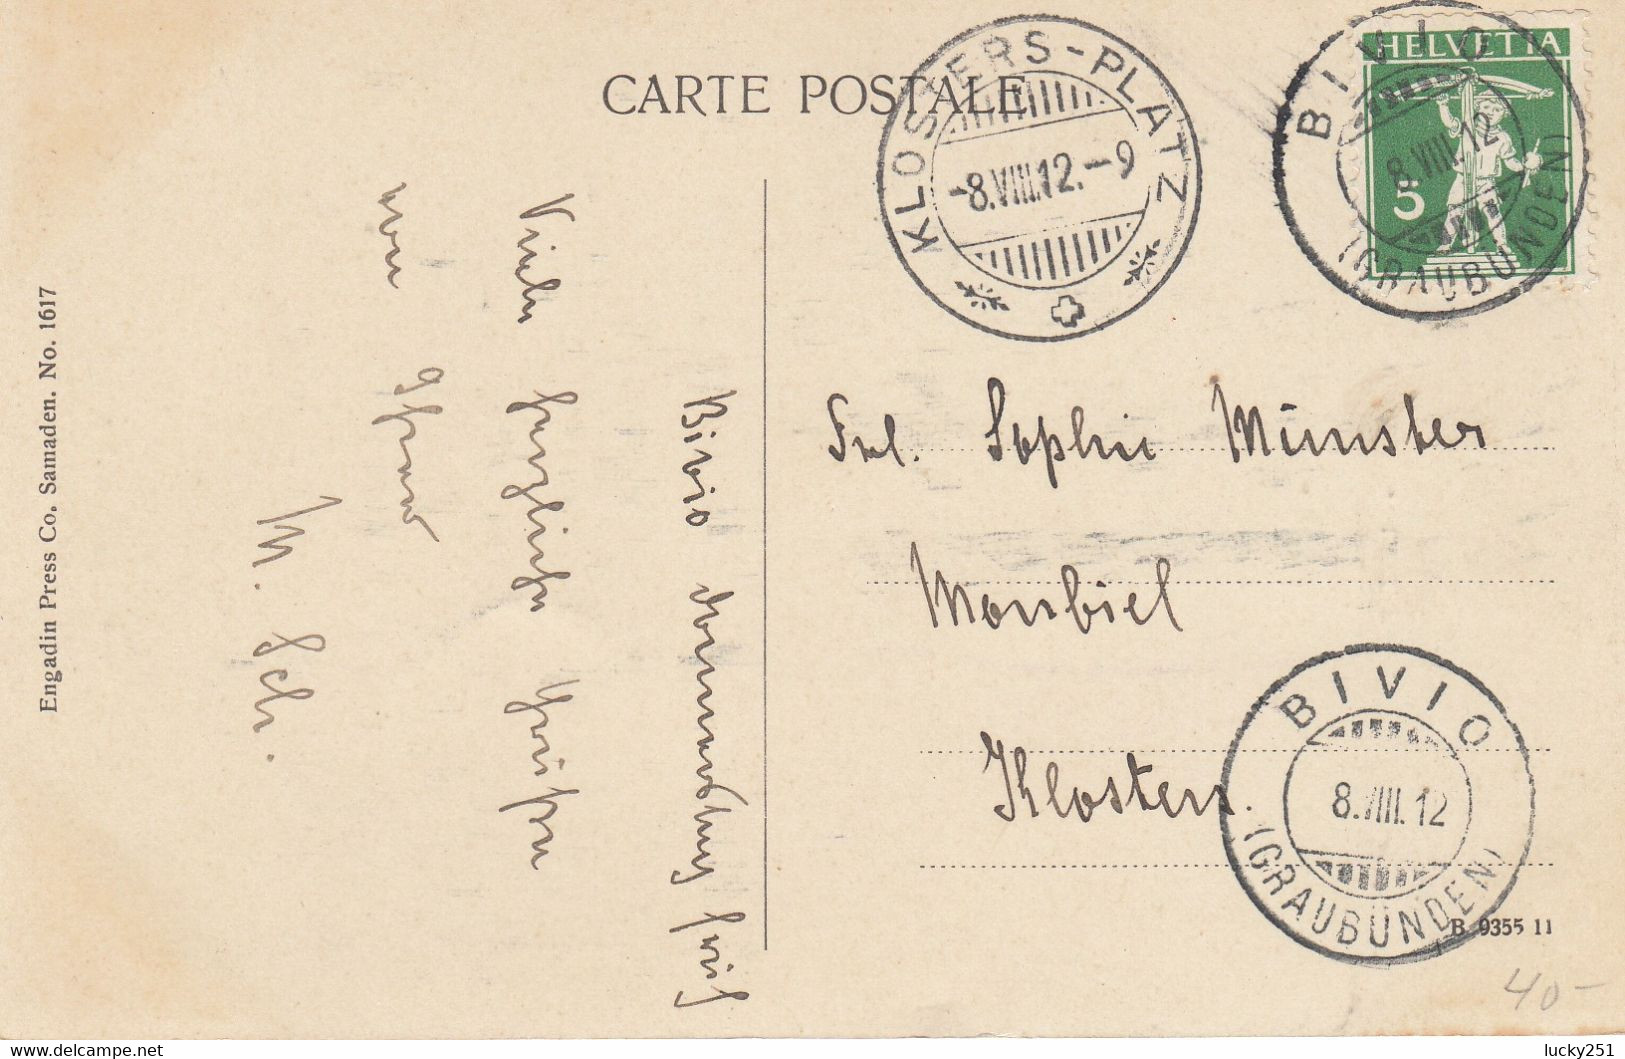 CARTE POSTALE
KLOSTERS-PLATZ
-8.VIII.12.-9
BIVIO
8.VIII.12
(GRAUBÜNDEN)
HELVETIA
5
Bivio donnerstag früh
Viele herzliche Grüsse
von Ihrem
M. Sch.
Frl. Sophie Münster
Monbiel
Klosters.
BIVIO
8.VIII.12
(GRAUBÜNDEN)
B 9355 11
40-
Engadin Press Co. Samaden. No. 1617
lucky251
www.delcampe.net